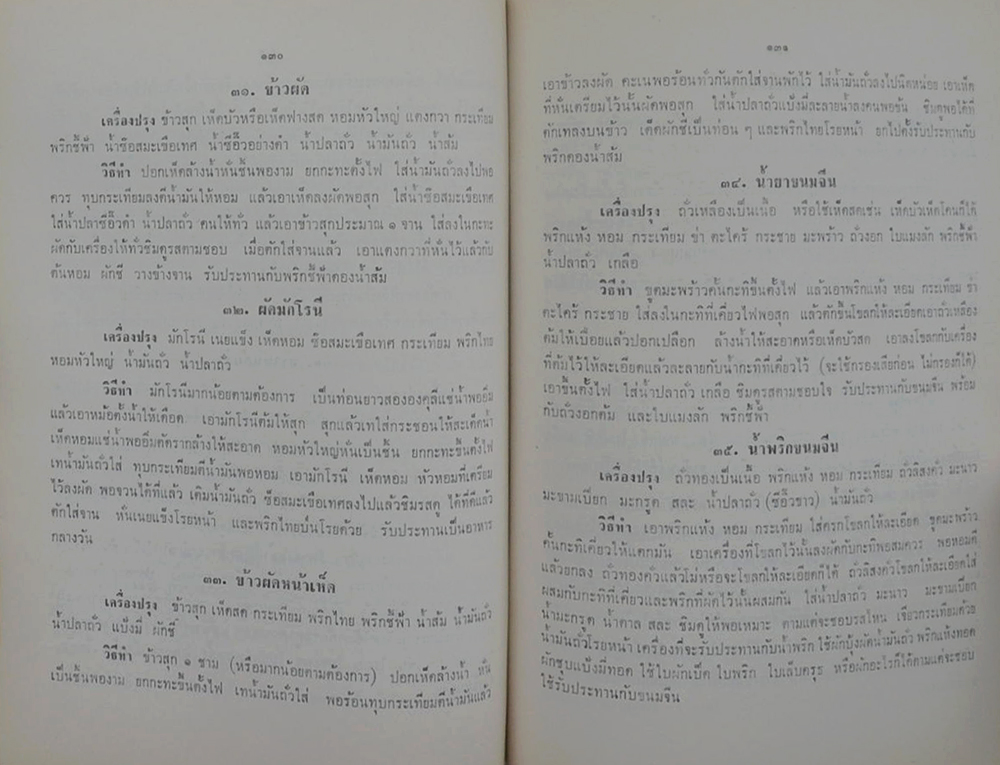 ๑๓๐
๓๑. ข้าวผัด
เครื่องปรุง ข้าวสุก เห็ดบัวหรือเห็ดฟางสด หอมหัวใหญ่ แตงกวา กระเทียม
พริกชี้ฟ้า น้ำซอสมะเขือเทศ น้ำซีอิ๊วอย่างดำ น้ำปลาถั่ว น้ำมันถั่ว น้ำส้ม
วิธีทำ ปอกเห็ดล้างน้ำหั่นชิ้นพองาม ยกกะทะตั้งไฟ ใส่น้ำมันถั่วลงไปพอ
ควร ทุบกระเทียมลงตีน้ำมันให้หอม แล้วเอาเห็ดลงผัดพอสุก ใส่น้ำซอสมะเขือเทศ
ใส่น้ำปลาซีอิ๊วดำ น้ำปลาถั่ว คนให้ทั่ว แล้วเอาข้าวสุกประมาณ ๑ จาน ใส่ลงในกะทะ
ผัดกับเครื่องให้ทั่วชิมดูรสตามชอบ เมื่อตักใส่จานแล้ว เอาแตงกวาที่หั่นไว้แล้วกับ
ต้นหอม ผักชี วางข้างจาน รับประทานกับพริกชี้ฟ้าดองน้ำส้ม
๓๒. ผัดมักโรนี
เครื่องปรุง มักโรนี เนยแข็ง เห็ดหอม ซอสมะเขือเทศ กระเทียม พริกไทย
หอมหัวใหญ่ น้ำมันถั่ว น้ำปลาถั่ว
วิธีทำ มักโรนีมากน้อยตามต้องการ เป็นท่อนยาวสององคุลีแช่น้ำพออืม
แล้วเอาหม้อตั้งน้ำให้เดือด เอามักโรนีต้มให้สุก สุกแล้วเทใส่กระชอนให้สะเด็ดน้ำ
เห็ดหอมแช่น้ำพออืมตัดรากล้างให้สะอาด หอมหัวใหญ่หั่นเป็นชิ้น ยกกะทะขึ้นตั้งไฟ
เทน้ำมันถั่วใส่ ทุบกระเทียมตีน้ำมันพอหอม เอามักโรนี เห็ดหอม หัวหอมที่เตรียม
ไว้ลงผัด พอจวนได้ที่แล้ว เติมน้ำมันถั่ว ซ็อสมะเขือเทศลงไปแล้วชิมรสดู ได้ที่ดีแล้ว
ตักใส่จาน หั่นเนยแข็งโรยหน้า และพริกไทยป่นโรยด้วย รับประทานเป็นอาหาร
กลางวัน
๓๓. ข้าวผัดหน้าเห็ด
เครื่องปรุง ข้าวสุก เห็ดสด กระเทียม พริกไทย พริกชี้ฟ้า น้ำส้ม น้ำมันถั่ว
น้ำปลาถั่ว แป้งมี่ ผักชี
วิธีทำ ข้าวสุก ๑ ชาม (หรือมากน้อยตามต้องการ) ปอกเห็ดล้างน้ำ หั่น
เป็นชิ้นพองาม ยกกะทะขึ้นตั้งไฟ เทน้ำมันถั่วใส่ พอร้อนทุบกระเทียมตีน้ำมันแล้ว
๑๓๑
เอาข้าวลงผัด คะเนพอร้อนทั่วกันตักใส่จานพักไว้ ใส่น้ำมันถั่วลงไปนิดหน่อย เอาเห็ด
ที่หั่นเตรียมไว้นั้นผัดพอสุก ใส่น้ำปลาถั่วแป้งมี่ละลายน้ำลงคนพอข้น ชิมดูพอได้ที่
ตักเทลงบนข้าว เด็ดผักชีเป็นท่อน ๆ และพริกไทยโรยหน้า ยกไปตั้งรับประทานกับ
พริกดองน้ำส้ม
๓๔. น้ำยาขนมจีน
เครื่องปรุง ถั่วเหลืองเป็นเนื้อ หรือใช้เห็ดสดเช่น เห็ดบัวเห็ดโคนก็ได้
พริกแห้ง หอม กระเทียม ข่า ตะไคร้ กระชาย มะพร้าว ถั่วงอก ใบแมงลัก พริกชี้ฟ้า
น้ำปลาถั่ว เกลือ
วิธีทำ ขูดมะพร้าวคั้นกะทิขึ้นตั้งไฟ แล้วเอาพริกแห้ง หอม กระเทียม ข่า
ตะไคร้ กระชาย ใส่ลงในกะทิที่เคี่ยวไฟพอสุก แล้วตักขึ้นโขลกให้ละเอียดเอาถั่วเหลือง
ต้มให้เปื่อยแล้วปอกเปลือก ล้างน้ำให้สะอาดหรือเห็ดบัวสด เอาลงโขลกกับเครื่อง
ที่ต้มไว้ให้ละเอียดแล้วละลายกับน้ำกะทิที่เคี่ยวไว้ (จะใช้กรองเสียก่อน ไม่กรองก็ได้)
เอาขึ้นตั้งไฟ ใส่น้ำปลาถั่ว เกลือ ชิมดูรสตามชอบใจ รับประทานกับขนมจีน พร้อม
กับถั่วงอกต้ม และใบแมงลัก พริกชี้ฟ้า
๓๕. น้ำพริกขนมจีน
เครื่องปรุง ถั่วทองเป็นเนื้อ พริกแห้ง หอม กระเทียม ถั่วลิสงคั่ว มะนาว
มะขามเปียก มะกรูด สละ น้ำปลาถั่ว (ซีอิ๊วขาว) น้ำมันถั่ว
วิธีทำ เอาพริกแห้ง หอม กระเทียม ใส่ครกโขลกให้ละเอียด ขูดมะพร้าว
คั้นกะทิเคี่ยวให้แตกมัน เอาเครื่องที่โขลกไว้นั้นลงผัดกับกะทิพอสมควร พอหอมดี
แล้วยกลง ถั่วทองคั่วแล้วโม่หรือจะโขลกให้ละเอียดก็ได้ ถั่วลิสงคั่วโขลกให้ละเอียดใส่
ผสมกับกะทิที่เคี่ยวและพริกที่ผัดไว้นั้นผสมกัน ใส่น้ำปลาถั่ว มะนาว มะขามเปียก
น้ำมะกรูด น้ำตาล สละ ชิมดูให้พอเหมาะ ตามแต่จะชอบรสไหน เจียวกระเทียมด้วย
น้ำมันถั่วโรยหน้า เครื่องที่จะรับประทานกับน้ำพริก ใช้ผักบุ้งผัดน้ำมันถั่ว พริกแห้งทอด
ผักชุบแป้งมี่ทอด ใช้ใบผักเป็ด ใบพริก ใบเล็บครุธ หรือผักอะไรก็ได้ตามแต่จะชอบ
ใช้รับประทานกับขนมจีน